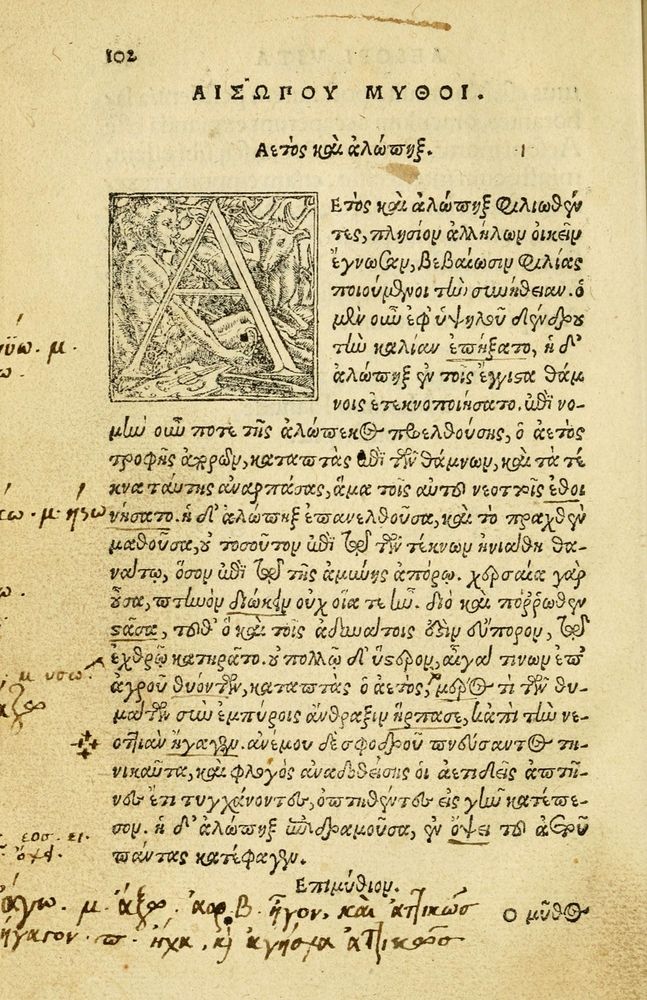 102
ΑΙΣΩΠΟΥ ΜΥΘΟΙ.
Αετὸς καὶ ἀλώπηξ. 1
ΑΕτὸς καὶ ἀλώπηξ φιλιωθέν
τες, πλησίον ἀλλήλων οἰκεῖν
ἔγνωσαν, βεβαίωσιν φιλίας
ποιούμενοι τὴν συνήθειαν. ὁ
μὲν οὖν ἐφ' ὑψηλοῦ δένδρου
τὴν καλίαν ἐπήξατο, ἡ δ'
ἀλώπηξ ἐν τοῖς ἔγγιστα θάμ
νοις ἐτεκνοποιήσατο. ἐπὶ νο-
μὴν οὖν ποτε τῆς ἀλώπεκος προελθούσης, ὁ ἀετὸς
τροφῆς ἀπορῶν, καταπτὰς ἐπὶ τῶν θάμνων, καὶ τὰ τέ
κνα ταύτης ἀναρπάσας, ἅμα τοῖς αὑτοῦ νεοττοῖς ἐθοι
νήσατο. ἡ δ' ἀλώπηξ ἐπανελθοῦσα, καὶ τὸ πραχθὲν
μαθοῦσα, οὐ τοσοῦτον ἐπὶ τῷ τῶν τέκνων ἠνιάθη θα-
νάτῳ, ὅσον ἐπὶ τῷ τῆς ἀμύνης ἀπόρῳ. χερσαία γὰρ
οὖσα, πτηνὸν διώκειν οὐχ οἵα τε ἦν. διὸ καὶ πόῤῥωθεν
στᾶσα, τοῦθ' ὃ καὶ τοῖς ἀδυνάτοις ἐστὶν εὔπορον, τῷ
ἐχθρῷ κατηρᾶτο. οὐ πολλῷ δ' ὕστερον, αἶγά τινων ἐπ'
ἀγροῦ θυόντων, καταπτὰς ὁ ἀετὸς, μέρος τι τῶν θυ-
μάτων σὺν ἐμπύροις ἄνθραξιν ἥρπασε, κἀπὶ τὴν νε-
οττιὰν ἤγαγεν. ἀνέμου δὲ σφοδροῦ πνεύσαντος τη-
νικαῦτα, καὶ φλογὸς ἀναδοθείσης οἱ ἀετιδεῖς ἀπτῆ-
νες ἔτι τυγχάνοντες, ὀπτηθέντες εἰς γῆν κατέπε-
σον. ἡ δ' ἀλώπηξ ἐπιδραμοῦσα, ἐν ὄψει τοῦ ἀετοῦ
πάντας κατέφαγεν.
Επιμύθιον.
Ο μῦθος